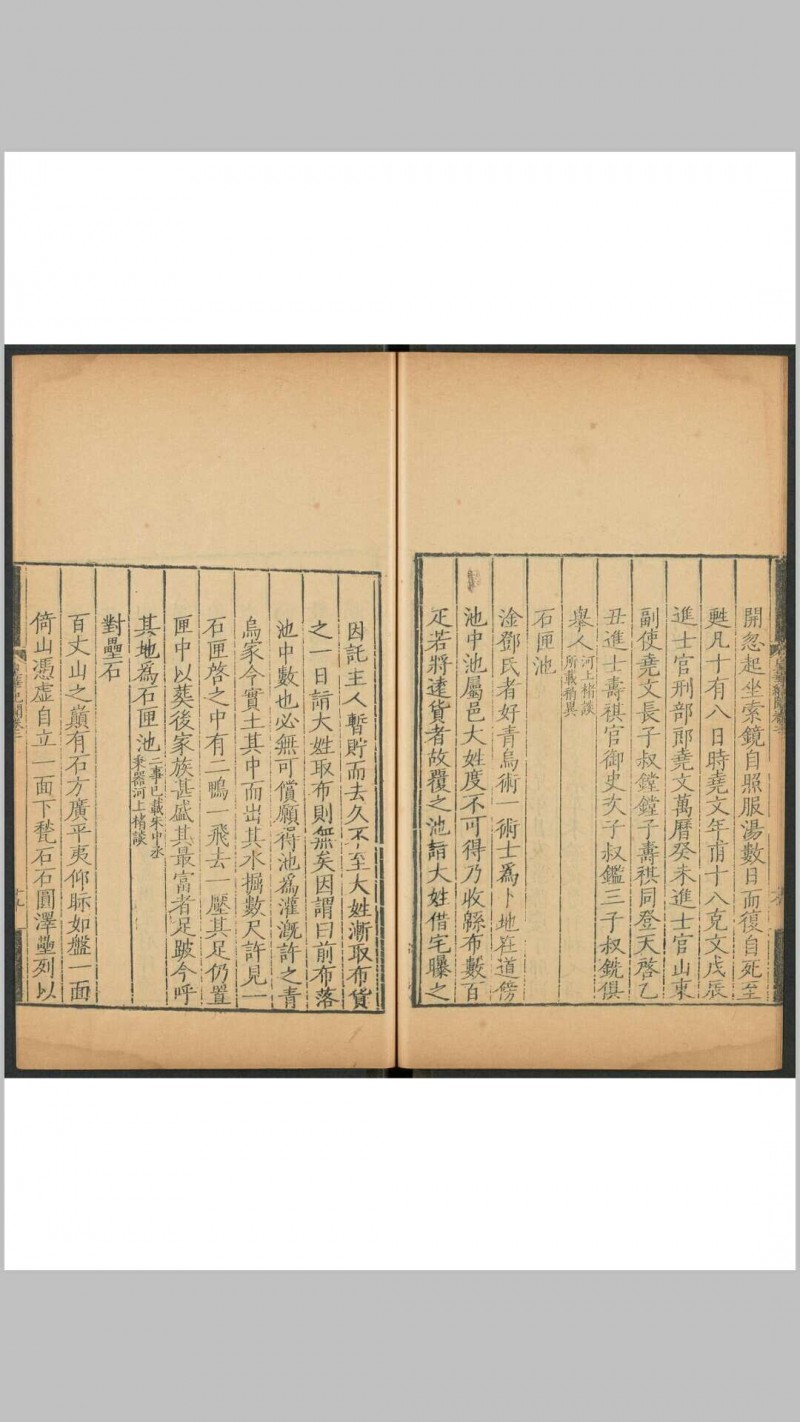 開忽起坐索鏡自照服湯數日而復自死至
甦凡十有八日時堯文年甫十八克文戊辰
進士官刑部郎堯文萬曆癸未進士官山東
副使堯文長子叔鏜鏜子壽祺同登天啓乙
丑進士壽祺官御史次子叔鑑三子叔銑俱
舉人河上楮談所載稍異
石匣池
淦鄧氏者好青烏術一術士爲卜地在道傍
池中池屬邑大姓度不可得乃收緜布數百
疋若將達貨者故覆之池詣大姓借宅曝之
因託主人暫貯而去久不至大姓漸取布貨
之一日詣大姓取布則無矣因謂曰前布落
池中數也必無可償願得池爲灌漑許之青
烏家令實土其中而出其水掘數尺許見一
石匣啓之中有二鴨一飛去一壓其足仍置
匣中以葬後家族甚盛其最富者足跛今呼
其地爲石匣池二事已載朱中丞秉器河上楮談
對壘石
百丈山之巔有石方廣平夷仰眎如盤一面
倚山憑虛自立一面下甃石石圓澤壘列以